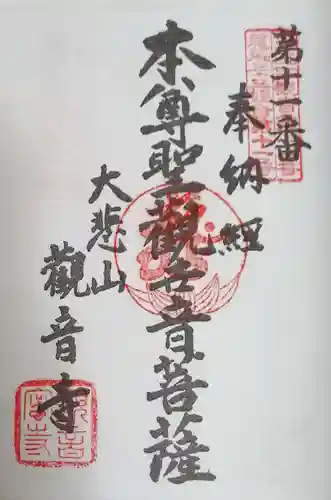 第十一番
奉納経
本尊聖観世音菩薩
大悲山
觀音寺